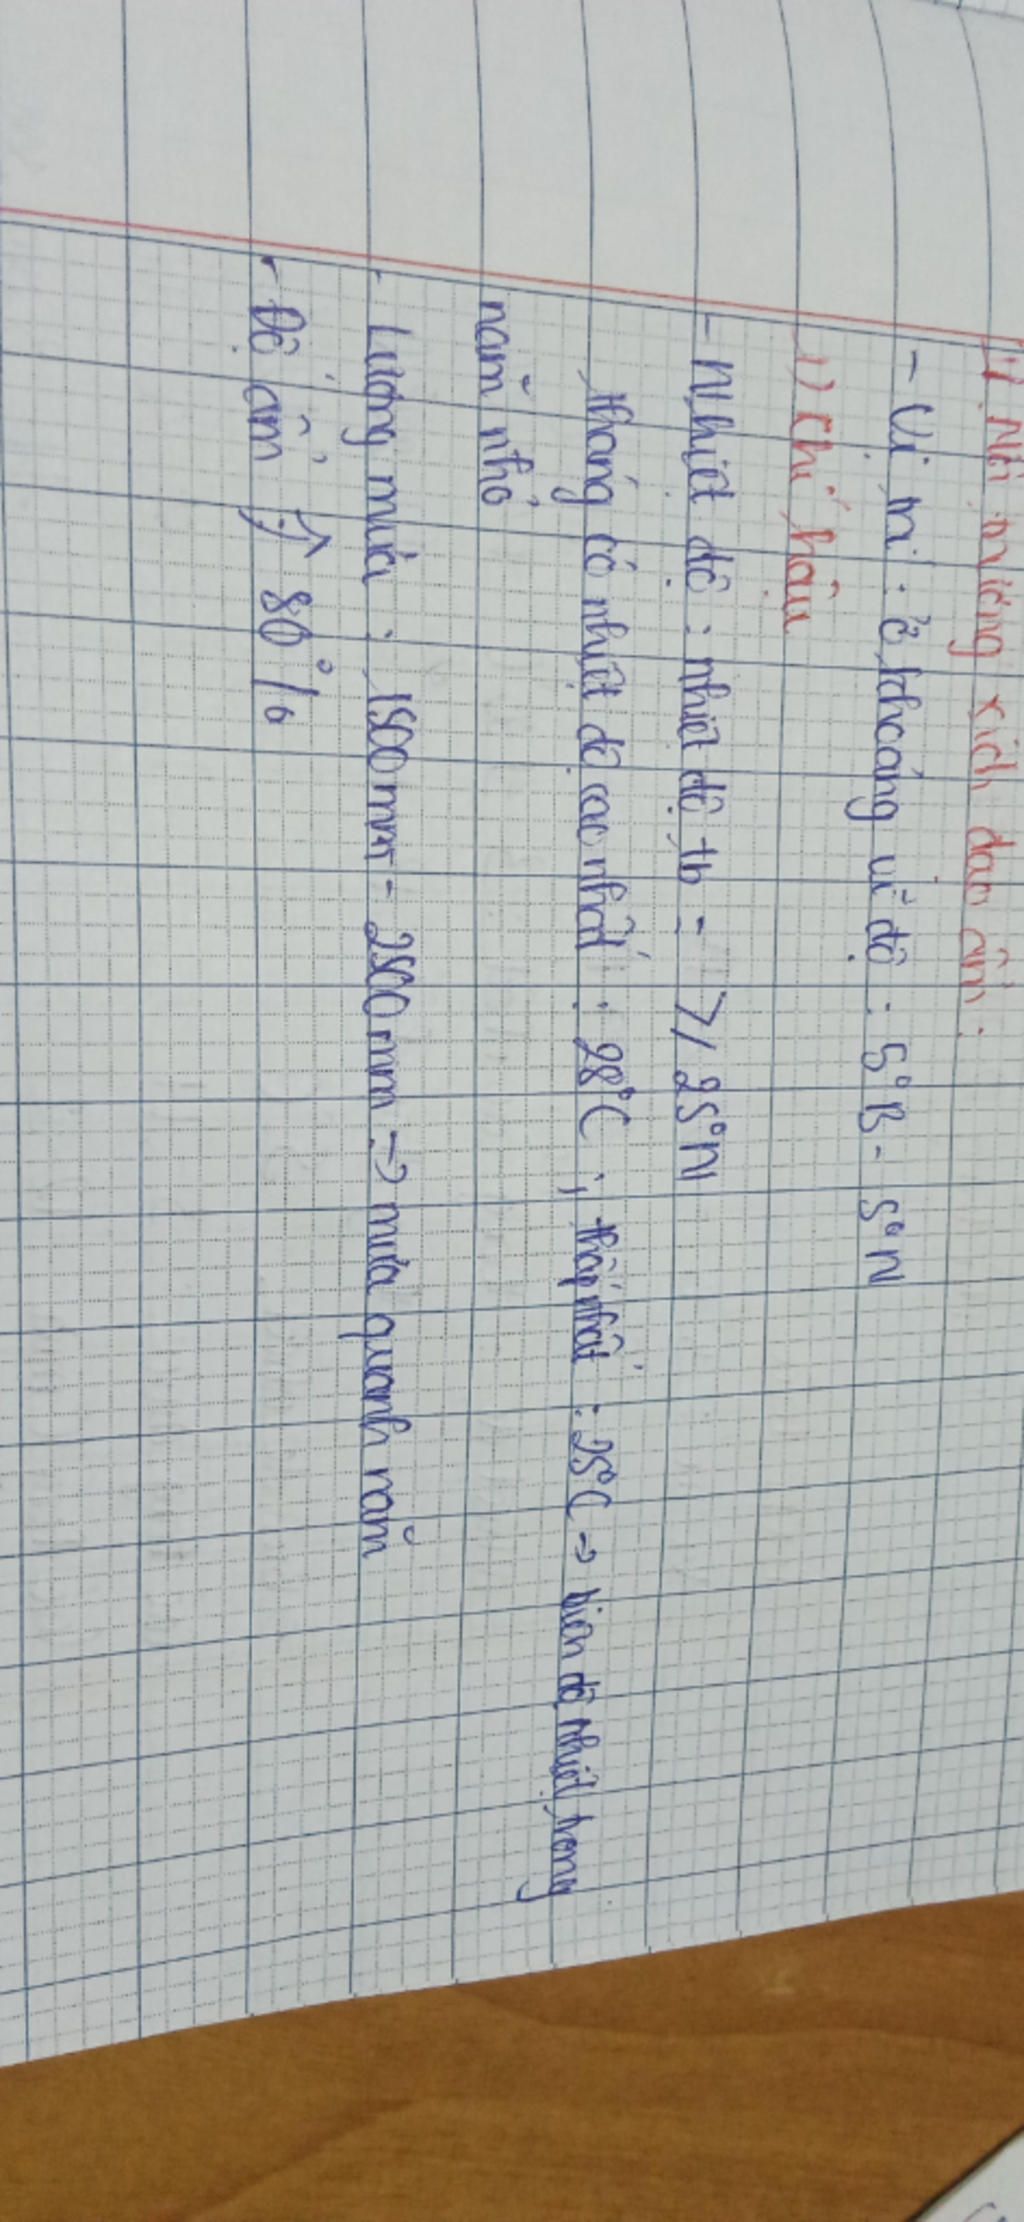 II/ Môi trường xích đạo ẩm :
- Vị trí : ở khoảng vĩ độ : 5°B - 5°N
1) Khí hậu
- Nhiệt độ : nhiệt độ tb : >/ 25°N
tháng có nhiệt độ cao nhất : 28°C ; thấp nhất : 25°C -> biên độ nhiệt trong
năm nhỏ
- Lượng mưa : 1500mm - 2500mm -> mưa quanh năm
- Độ ẩm 80%